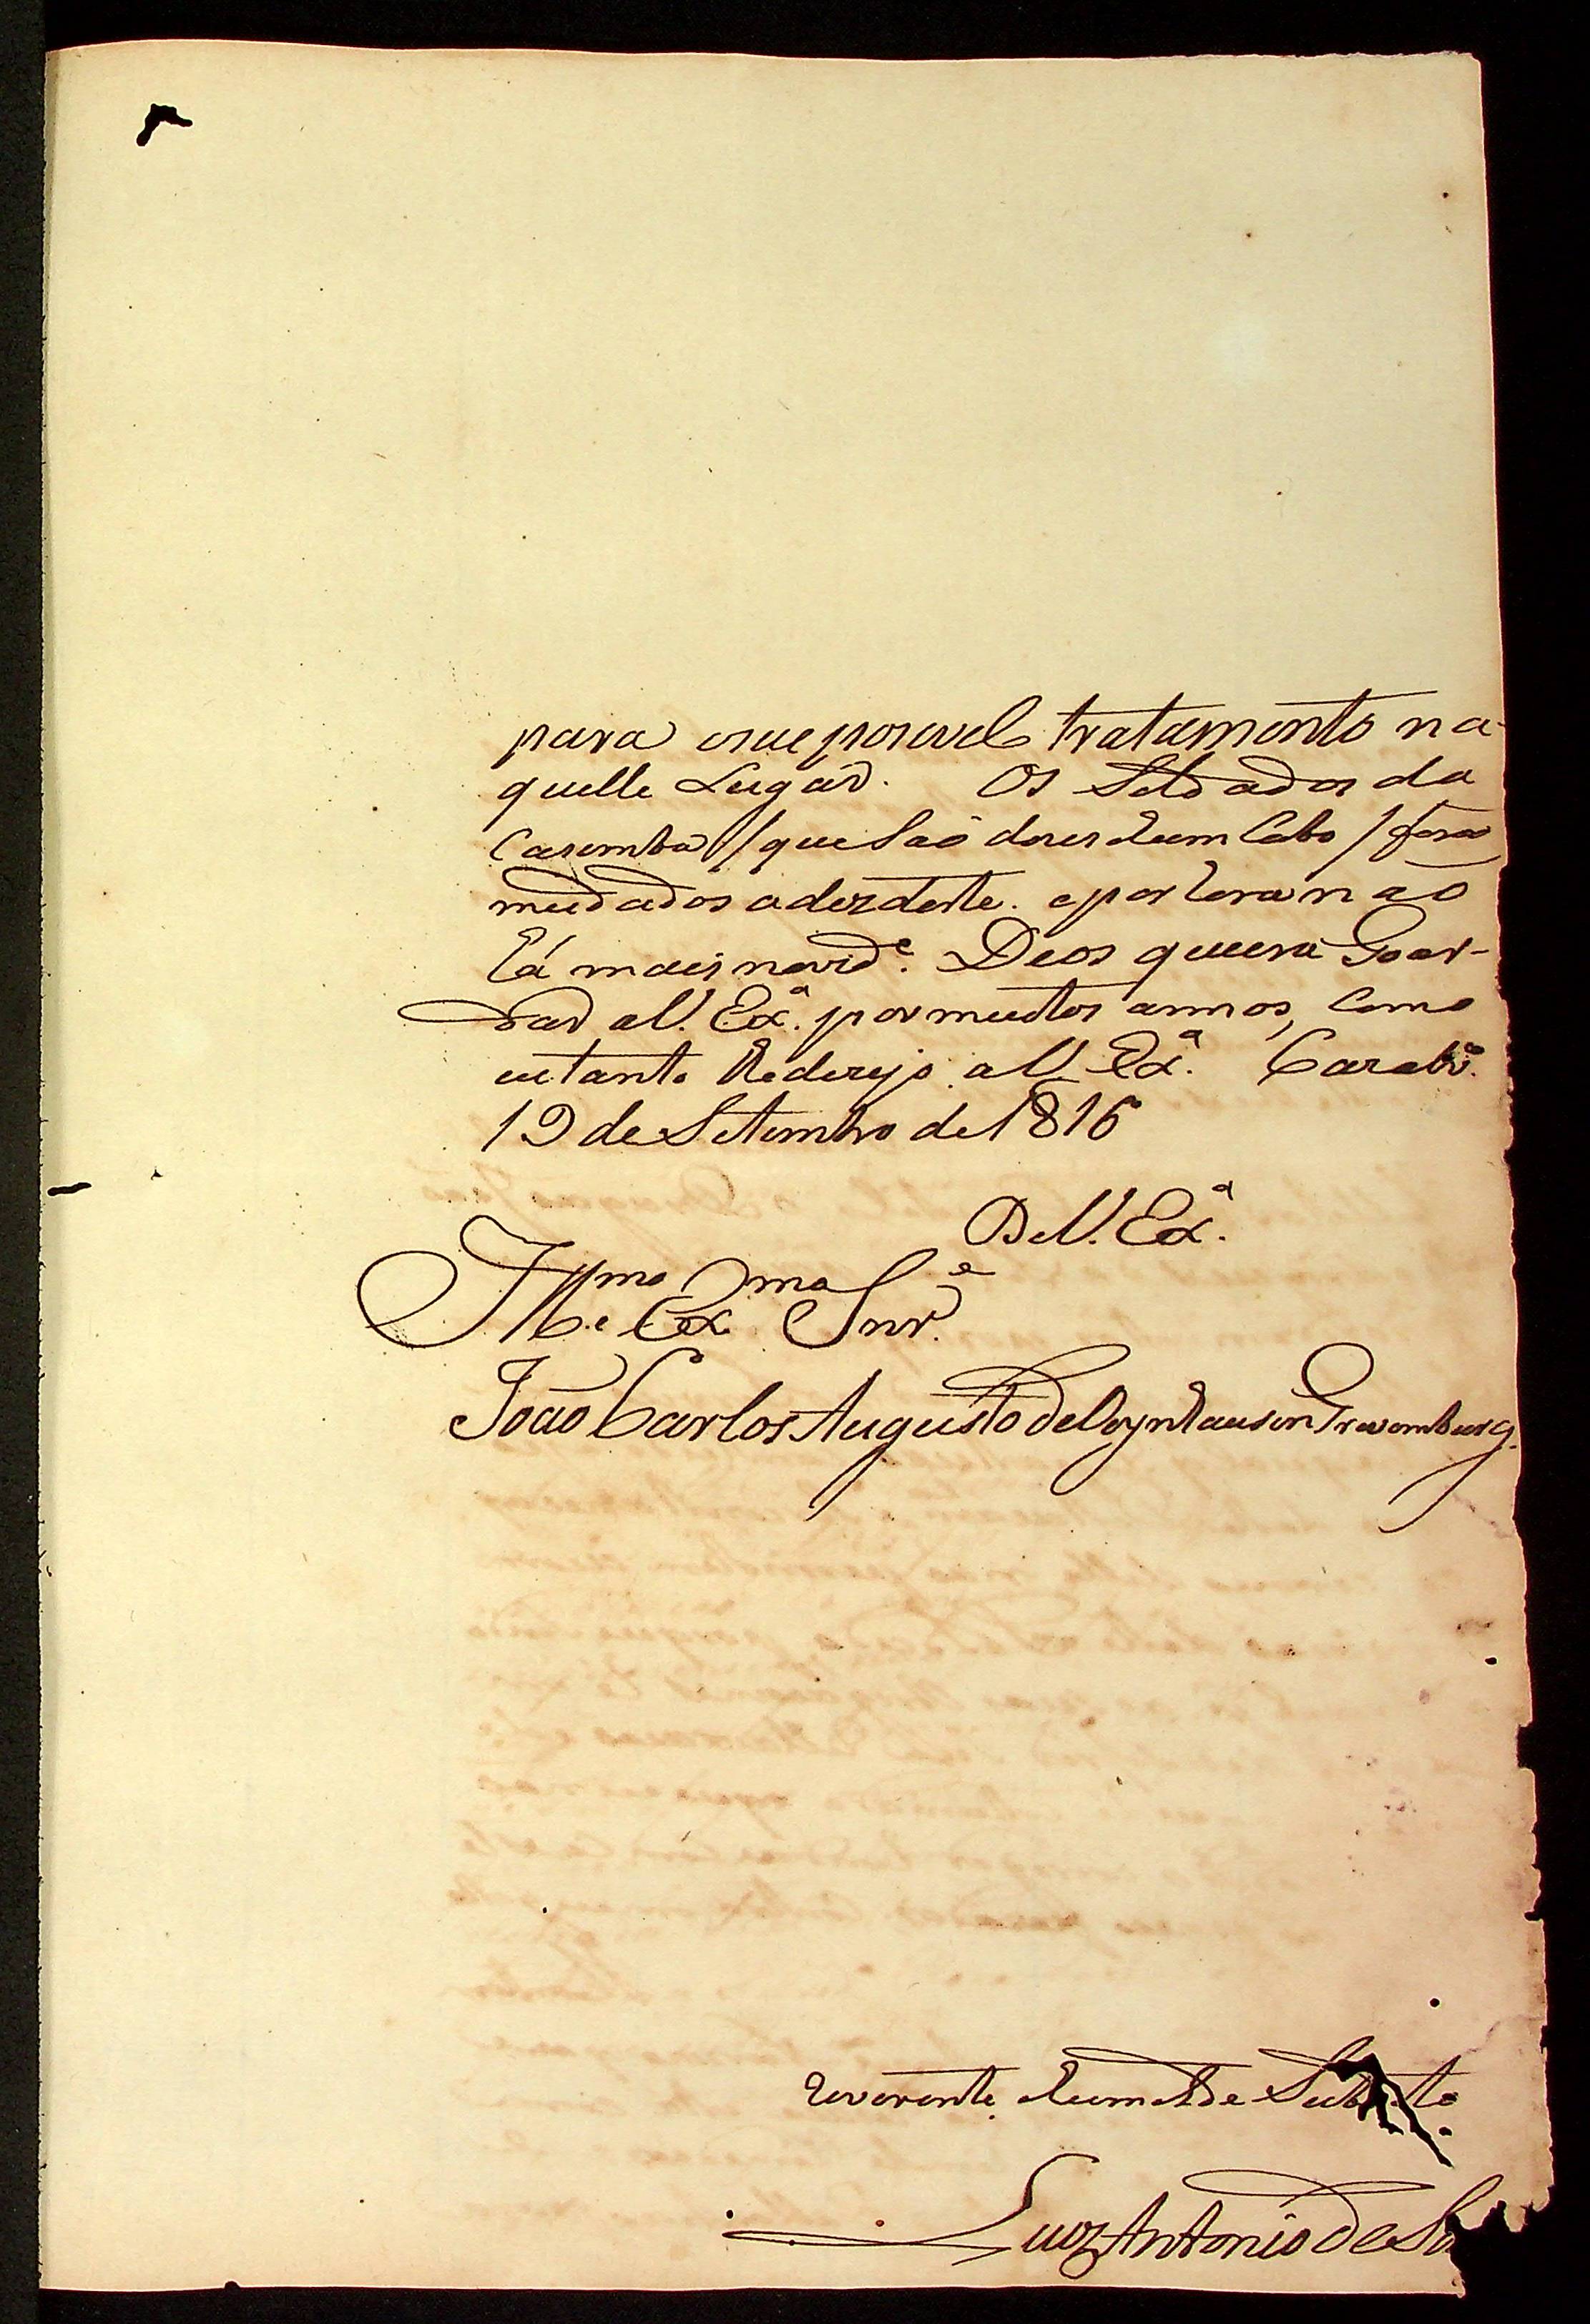 para osueporavel tratamento na-
quelle Lugar. Os Soldados da
Casemba / que Saõ dois e hum Cabo / foraõ
mudados a dez deste. e por hora naõ
há mais novid.e Deos queira Goar-
dar a V. Ex.a por muitos annos, Como
eu tanto Hederejo a V. Ex.a
19 de Setembro de 1816
De V. Ex.a
Ill.mo e Ex.mo Snr.e
João Carlos Augusto de Oeynhausen Grevemburg.
Reverente. e humilde
Luiz Antonio de